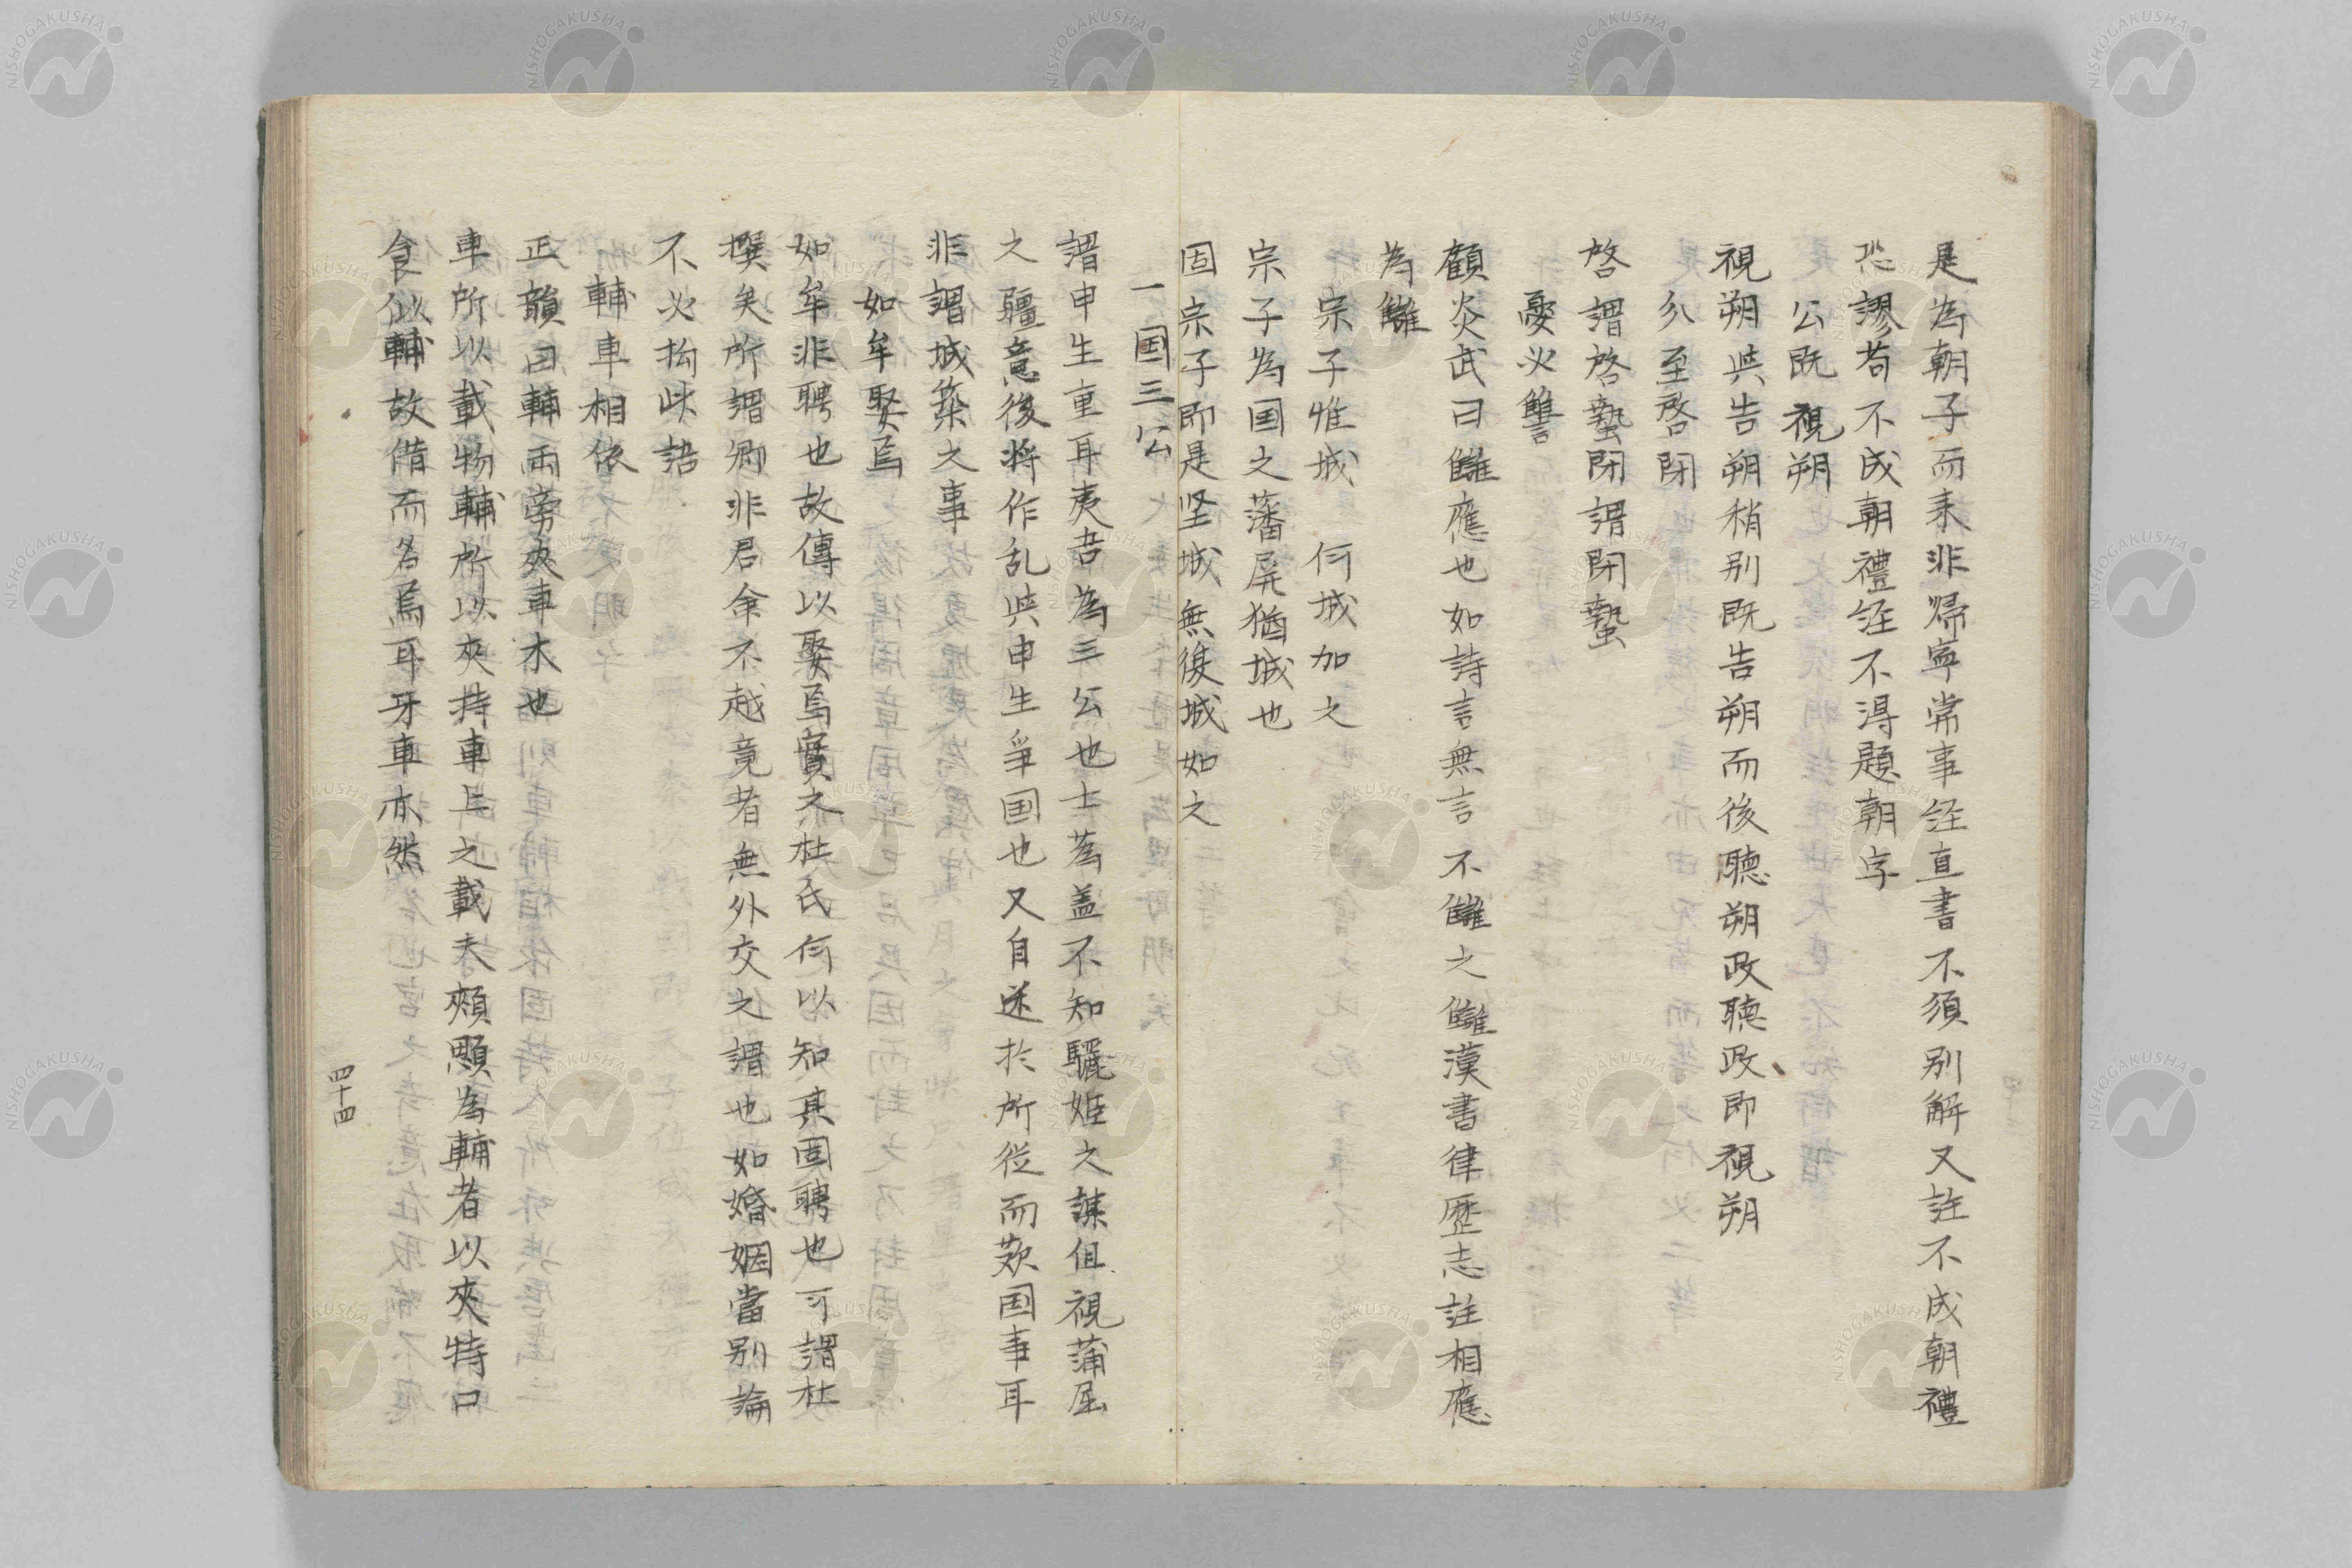 是為朝子而来非帰寧常事経直書不須別解又註不成朝禮
恐謬苟不成朝禮経不得題朝字
公既視朔
視朔與告朔稍別既告朔而後聴朔政聴政即視朔
分至啓閉
啓謂啓蟄閉謂閉蟄
憂必讐
顧炎武曰讎應也如詩言無言不讎之讎漢書律歴志註相應
為讎
宗子惟城 何城加之
宗子為国之藩屏猶城也
固宗子即是堅城無復城如之
一国三公
謂申生重耳夷吾為三公也士蒍盖不知驪姫之謀但視蒲屈
之疆意後将作乱與申生争国也又自迷於所從而歎国事耳
非謂城築之事
如牟娶焉
如牟非聘也故傳以娶焉實之杜氏何以知其因聘也可謂杜
撰矣所謂卿非君命不越竟者無外交之謂也如婚姻當別論
不必拘此語
輔車相依
正韻曰輔兩旁夾車木也
車所以載物輔所以夾持車上之載夫頰顋為輔者以夾特口
食似輔故借而名焉耳牙車亦然
四十四
NISHOGAKUSHA